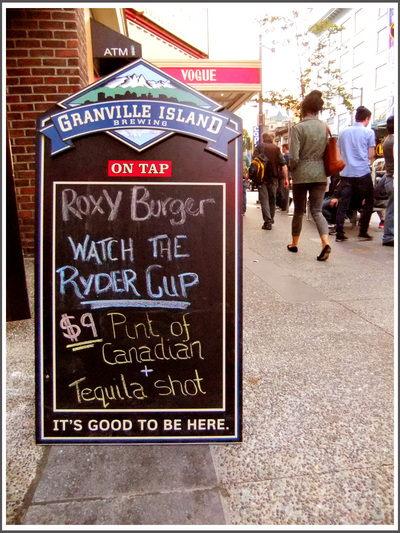 ATM
VOGUE
GRANVILLE ISLAND
BREWING
ON TAP
Roxy Burger
WATCH THE
RYDER CUP
$9 Pint of
Canadian
+
Tequila shot
IT'S GOOD TO BE HERE.